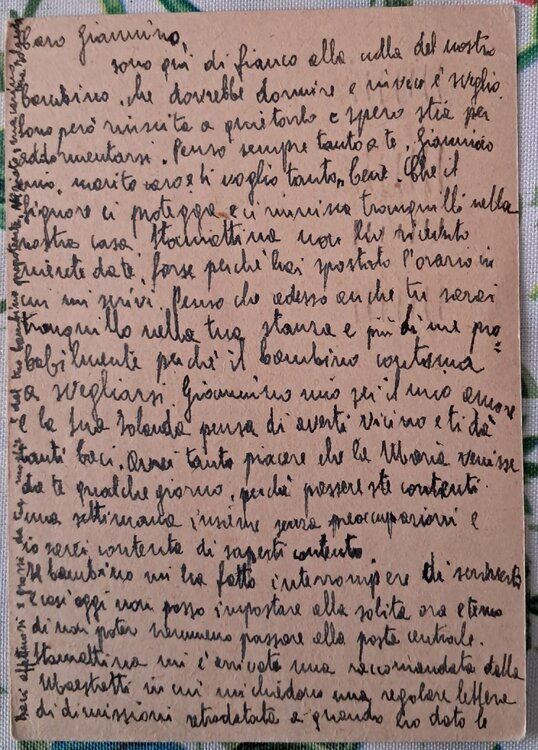 Caro Giannino,
sono qui di fianco alla culla del nostro
bambino, che dovrebbe dormire e invece è sveglio.
Sono però riuscita a quietarlo e spero stia per
addormentarsi. Penso sempre tanto a te, Giannino
mio, marito caro e ti voglio tanto, bene. Che il
Signore ci protegga e ci riunisca tranquilli nella
nostra casa. Stamattina non ho ricevuto
niente da te, forse perché hai spostato l'orario in
cui mi scrivi. Penso che adesso anche tu sarai
tranquillo nella tua stanza e più di me pro=
babilmente perché il bambino continua
a svegliarsi. Giannino mio sei il mio amore
e la tua Iolanda pensa di averti vicino e ti dà
tanti baci. Avrei tanto piacere che la Maria venisse
da te qualche giorno, perché passereste contenti
una settimana insieme senza preoccupazioni e
io sarei contenta di saperti contento.
Il bambino mi ha fatto interrompere di scriverti
e così oggi non posso impostare alla solita ora e temo
di non poter nemmeno passare alla posta centrale.
Stamattina mi è arrivata una raccomandata dalla
Maestretti in cui mi chiedono una regolare lettera
di dimissioni retrodatata a quando ho dato le
baci affettuosi e grossi da tua moglie e dal tuo bambino